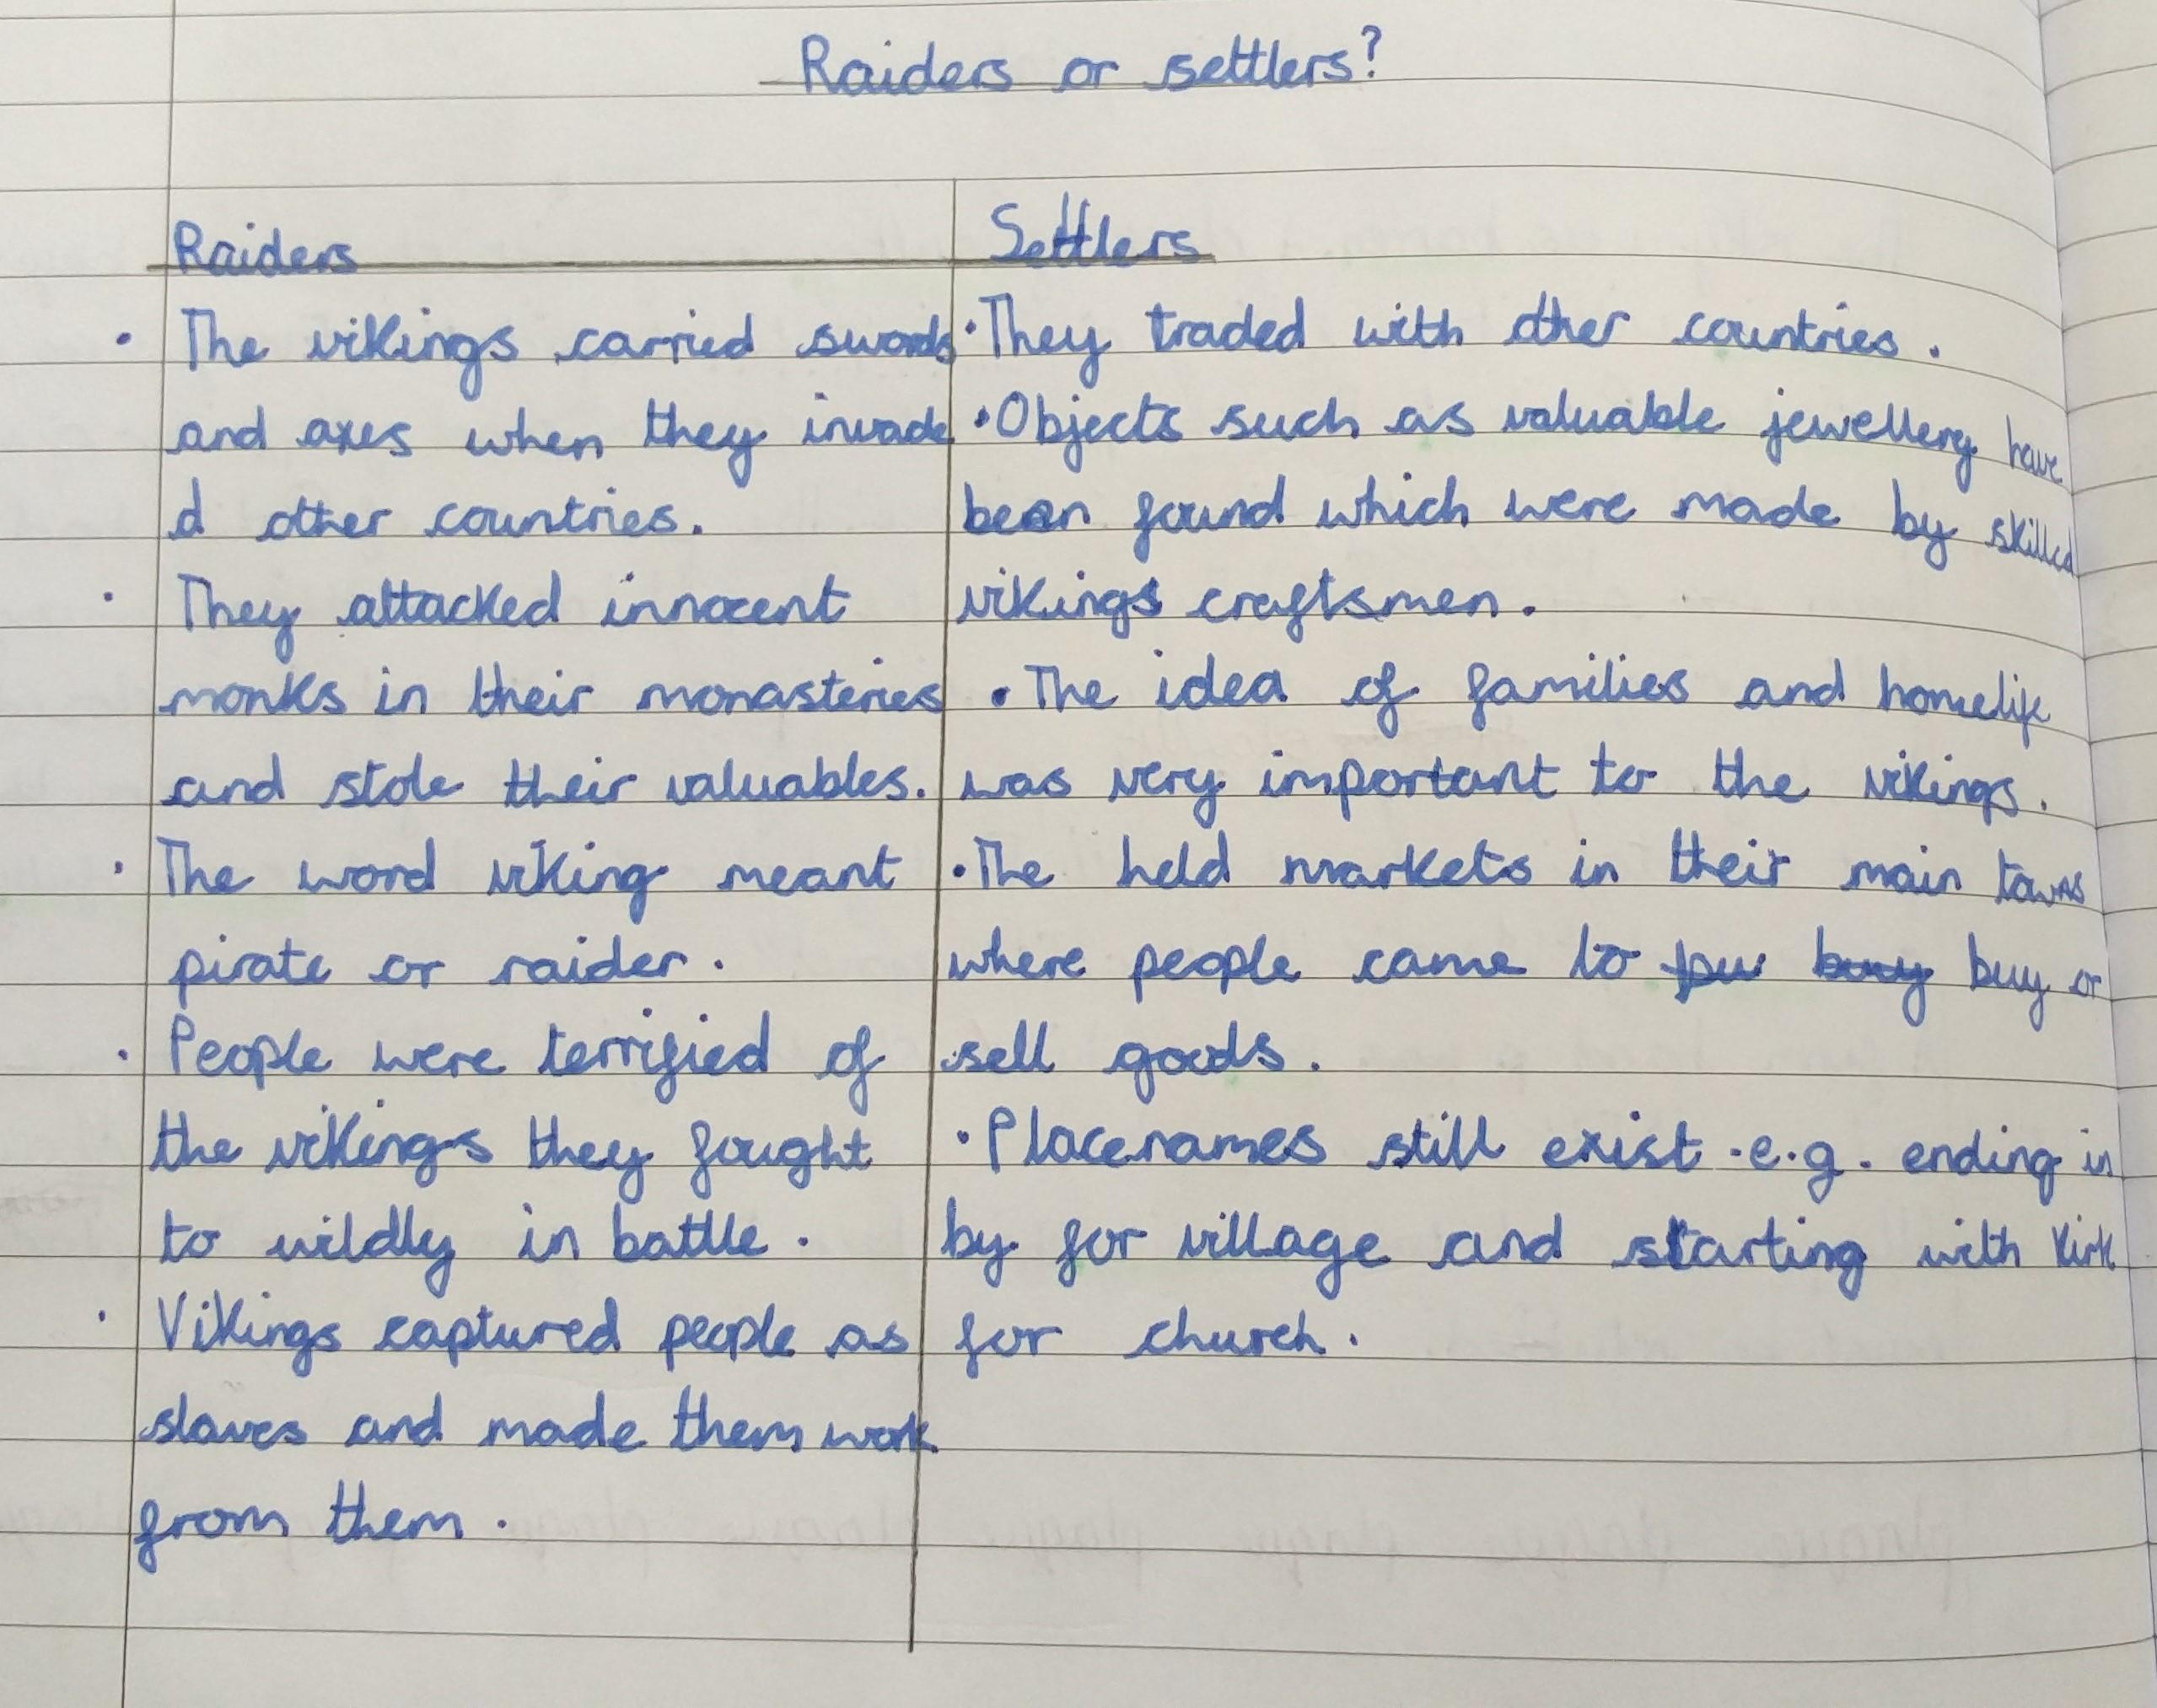 Raiders or settlers?
Raiders
The vikings carried swords
and axes when they invade
d other countries.
They attacked innocent
monks in their monasteries
and stole their valuables.
The word viking meant
pirate or raider.
People were terrified of
the vikings they fought
to wildly in battle.
Vikings captured people as
slaves and made them work
from them.
Settlers
• They traded with other countries.
• Objects such as valuable jewellery have
been found which were made by skilled
vikings craftsmen.
• The idea of families and homelife
was very important to the vikings.
• The held markets in their main towns
where people came to buy or
sell goods.
• Placenames still exist .e.g. ending in
by for village and starting with kirk
for church.